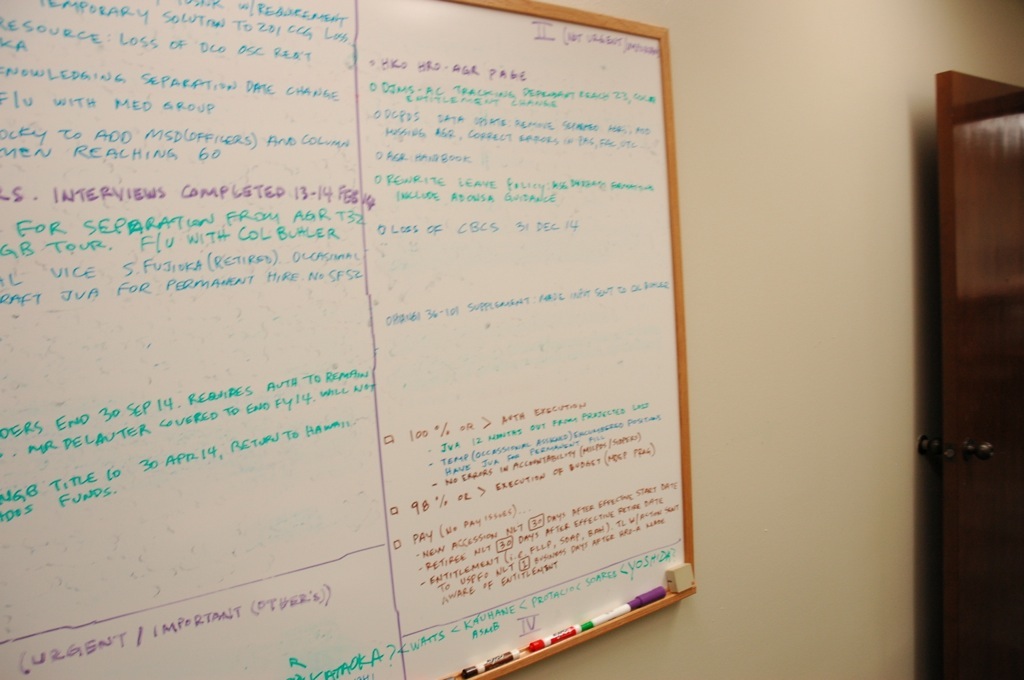 TEMPORARY SOLUTION TO 201 CCG LOSS,
RESOURCE: LOSS OF DCO OSC REQ'T
KNOWLEDGING SEPARATION DATE CHANGE
F/U WITH MED GROUP
OCKY TO ADD MSD (OFFICERS) AND COLUMN
MEN REACHING 60
RS. INTERVIEWS COMPLETED 13-14 FEB 14
FOR SEPARATION FROM AGR T32
GB TOUR. F/U WITH COL BUHLER
AL VICE S. FUJIOKA (RETIRED). OCCASIONAL
RAFT JVA FOR PERMANENT HIRE. NO SF52
DERS END 30 SEP 14. REQUIRES AUTH TO REMAIN
. MR DELAUTER COVERED TO END FY14. WILL NOT
NGB TITLE 10 30 APR 14, RETURN TO HAWAII.
ADOS FUNDS.
(URGENT / IMPORTANT (OTHER'S))
II (NOT URGENT/IMPORTANT)
O GKO HRO-AGR PAGE
O DJMS-AC TRACKING DEPENDENT REACH 23, COLA
ENTITLEMENT CHANGE
O DCPDS DATA UPDATE: REMOVE SEPARATED AGRS, ADD
MISSING AGR, CORRECT ERRORS IN PAS, FAC, ETC.
O AGR HANDBOOK
O REWRITE LEAVE POLICY:
INCLUDE ADONSA GUIDANCE
O LOSS OF CBCS 31 DEC 14
36-101 SUPPLEMENT: INPUT SENT TO COL BUHLER
□ 100% OR > AUTH EXECUTION
- JVA 12 MONTHS OUT FROM PROJECTED LOSS
- TEMP (OCCASSIONAL ASSIGNED) ENCUMBERED POSITIONS
HAVE JVA FOR PERMANENT FILL
- NO ERRORS IN ACCOUNTABILITY (MILPDS/SIDPERS)
□ 98% OR > EXECUTION OF BUDGET (MDEP PRAG)
□ PAY (NO PAY ISSUES)...
- NEW ACCESSION NLT 30 DAYS AFTER EFFECTIVE START DATE
- RETIREE NLT 30 DAYS AFTER EFFECTIVE RETIRE DATE
- ENTITLEMENT (i.e. FLLP, SDAP, BAH). TL W/ACTION SENT
TO USPFO NLT 1 BUSINESS DAYS AFTER HRO-A MADE
AWARE OF ENTITLEMENT
KATAOKA? < WATTS < KAUHANE < PROTACIO < SOARES < YOSHIDA?
ASMB
IV